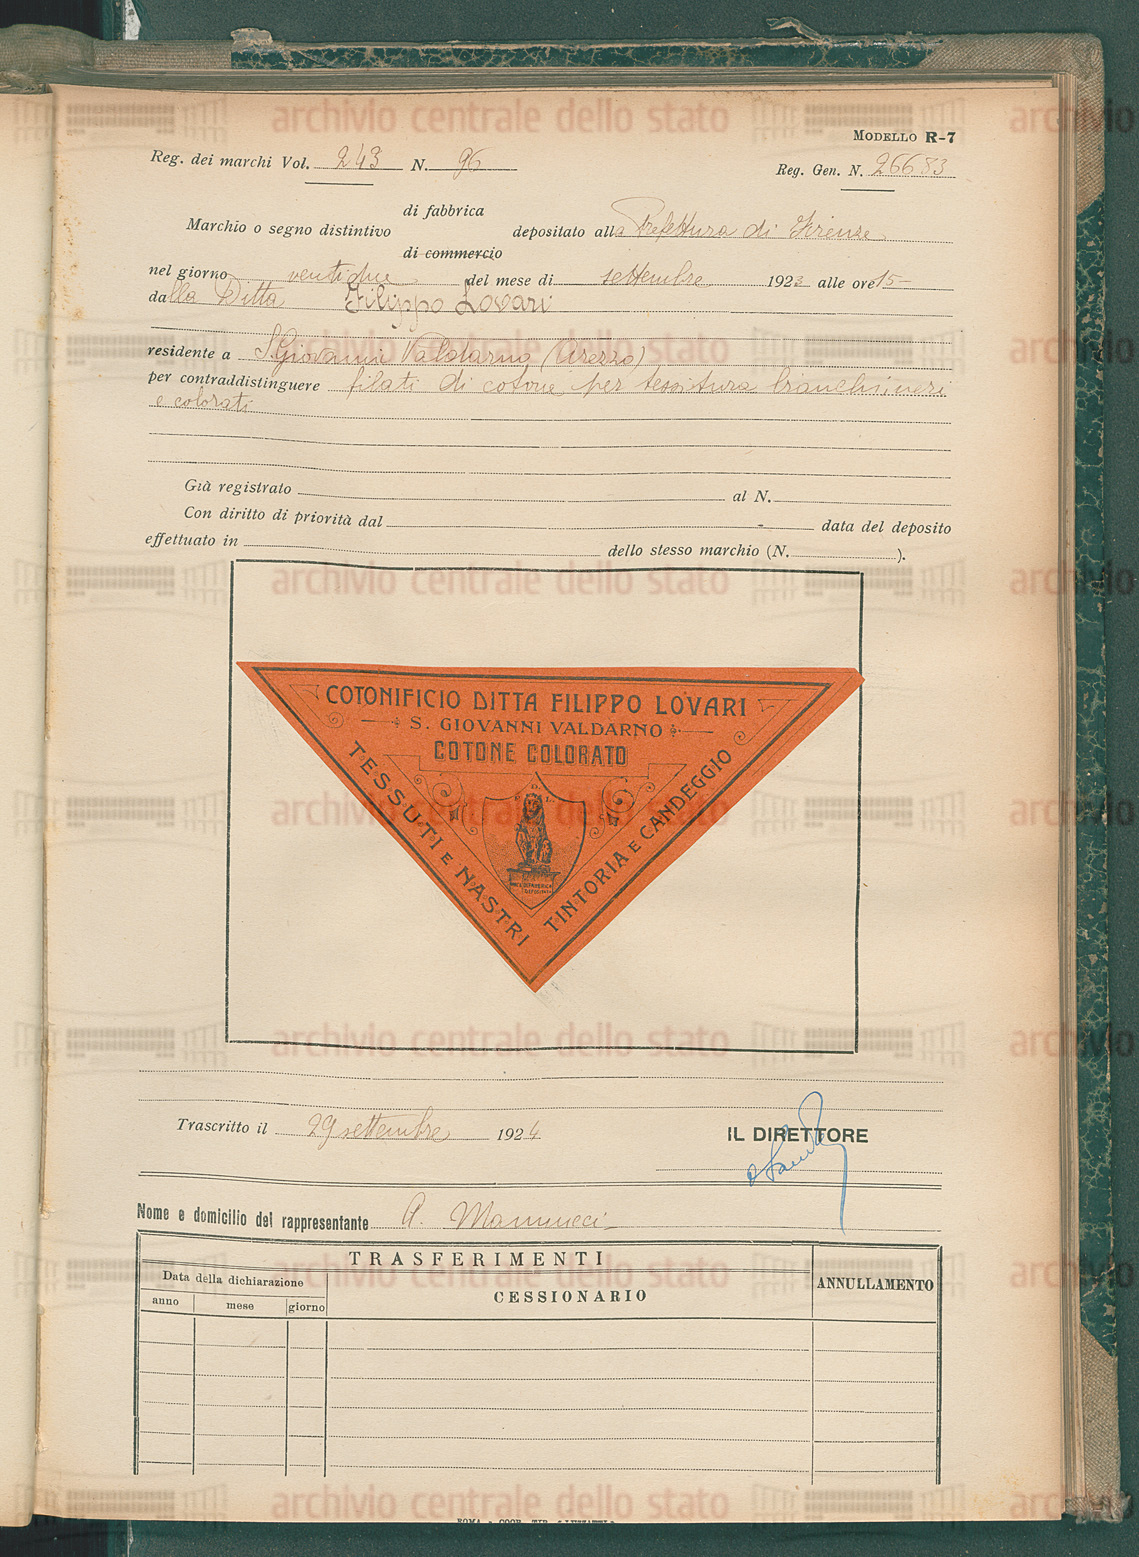 MODELLO R-7
Reg. dei marchi Vol. 243 N. 96
Reg. Gen. N. 26683
di fabbrica
Marchio o segno distintivo depositato alla Prefettura di Firenze
di commercio
nel giorno ventidue del mese di settembre 1923 alle ore 15
dalla Ditta Filippo Lovari
residente a S. Giovanni Valdarno (Arezzo)
per contraddistinguere filati di cotone per tessitura bianchi, neri
e colorati
Già registrato al N.
Con diritto di priorità dal data del deposito
effettuato in dello stesso marchio (N. ).
COTONIFICIO DITTA FILIPPO LOVARI
S. GIOVANNI VALDARNO
COTONE COLORATO
TESSUTI E NASTRI
TINTORIA E CANDEGGIO
Trascritto il 29 settembre 1924
IL DIRETTORE
Nome e domicilio del rappresentante A. Mannucci
TRASFERIMENTI
Data della dichiarazione
CESSIONARIO
ANNULLAMENTO
anno mese giorno
archivio centrale dello stato